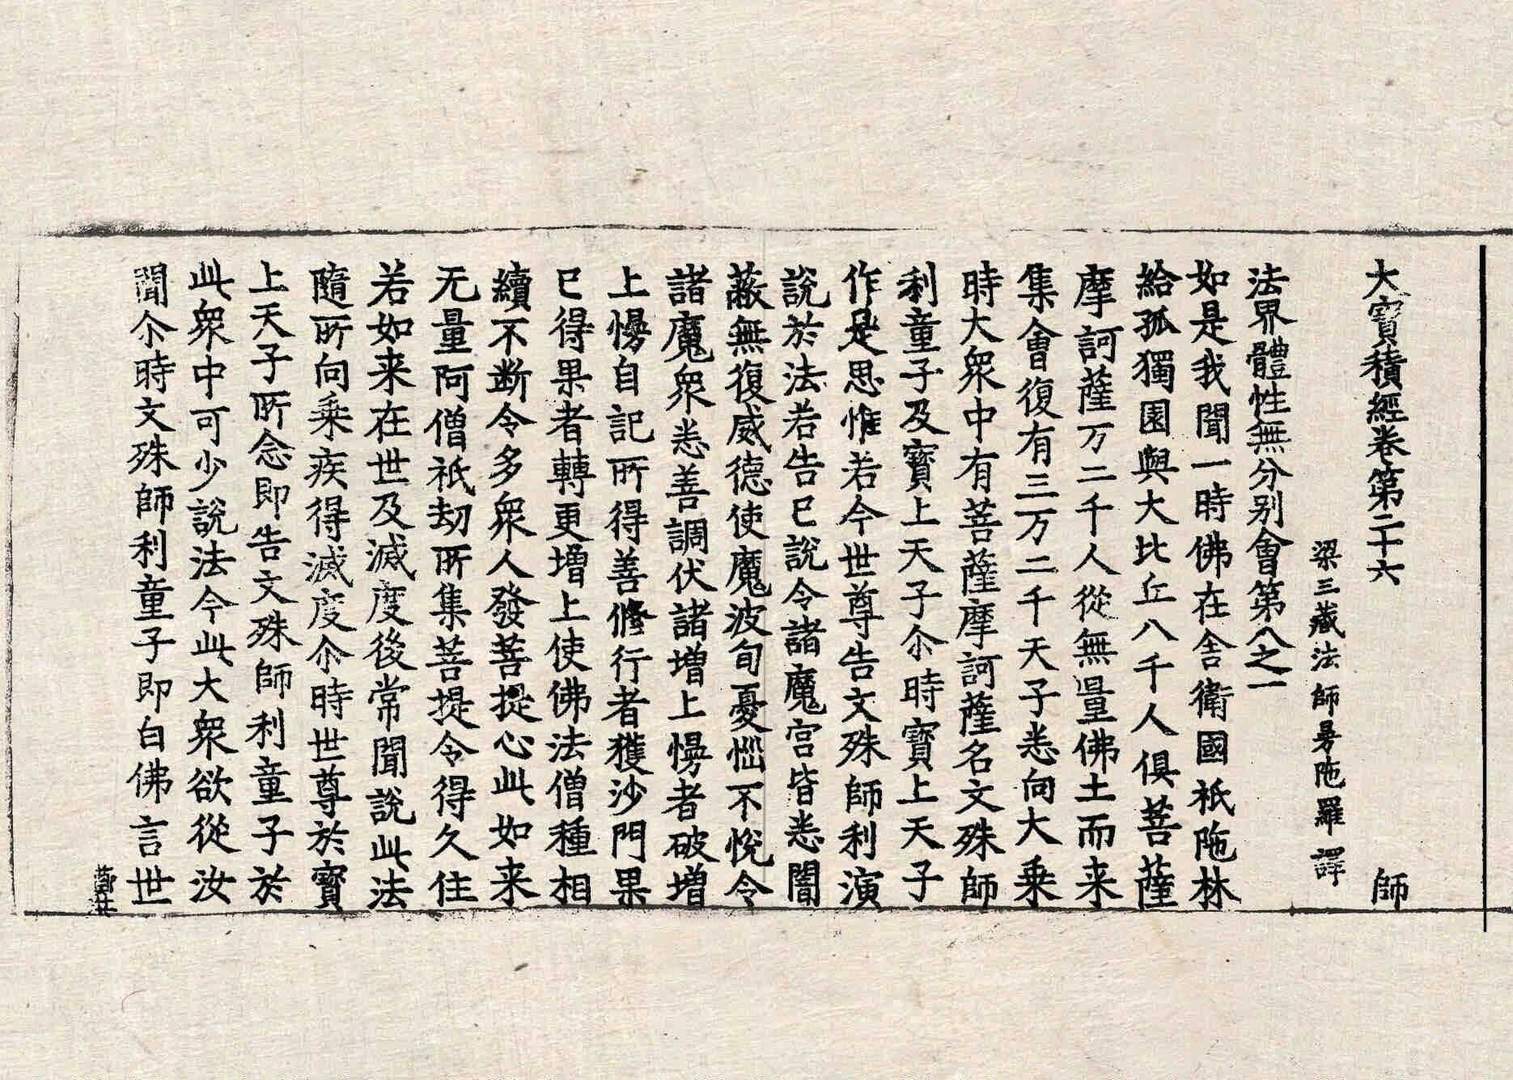 大寳積經卷第二十六 師
梁三藏法師曼陁羅譯
法界體性無分別會第八之一
如是我聞一時佛在舍衛國祇陁林
給孤獨園與大比丘八千人俱菩薩
摩訶薩万二千人從無量佛土而来
集會復有三万二千天子悉向大乗
時大衆中有菩薩摩訶薩名文殊師
利童子及寳上天子尒時寳上天子
作是思惟若今世尊告文殊師利演
說於法若告已說令諸魔宫皆悉闇
蔽無復威德使魔波旬憂惱不悅令
諸魔衆悉善調伏諸增上慢者破增
上慢自記所得善修行者獲沙門果
已得果者轉更增上使佛法僧種相
續不断令多衆人發菩提心此如来
无量阿僧祇劫所集菩提令得久住
若如来在世及滅度後常聞說此法
隨所向乗疾得滅度尒時世尊於寳
上天子所念即告文殊師利童子於
此衆中可少說法今此大衆欲從汝
聞尒時文殊師利童子即白佛言世